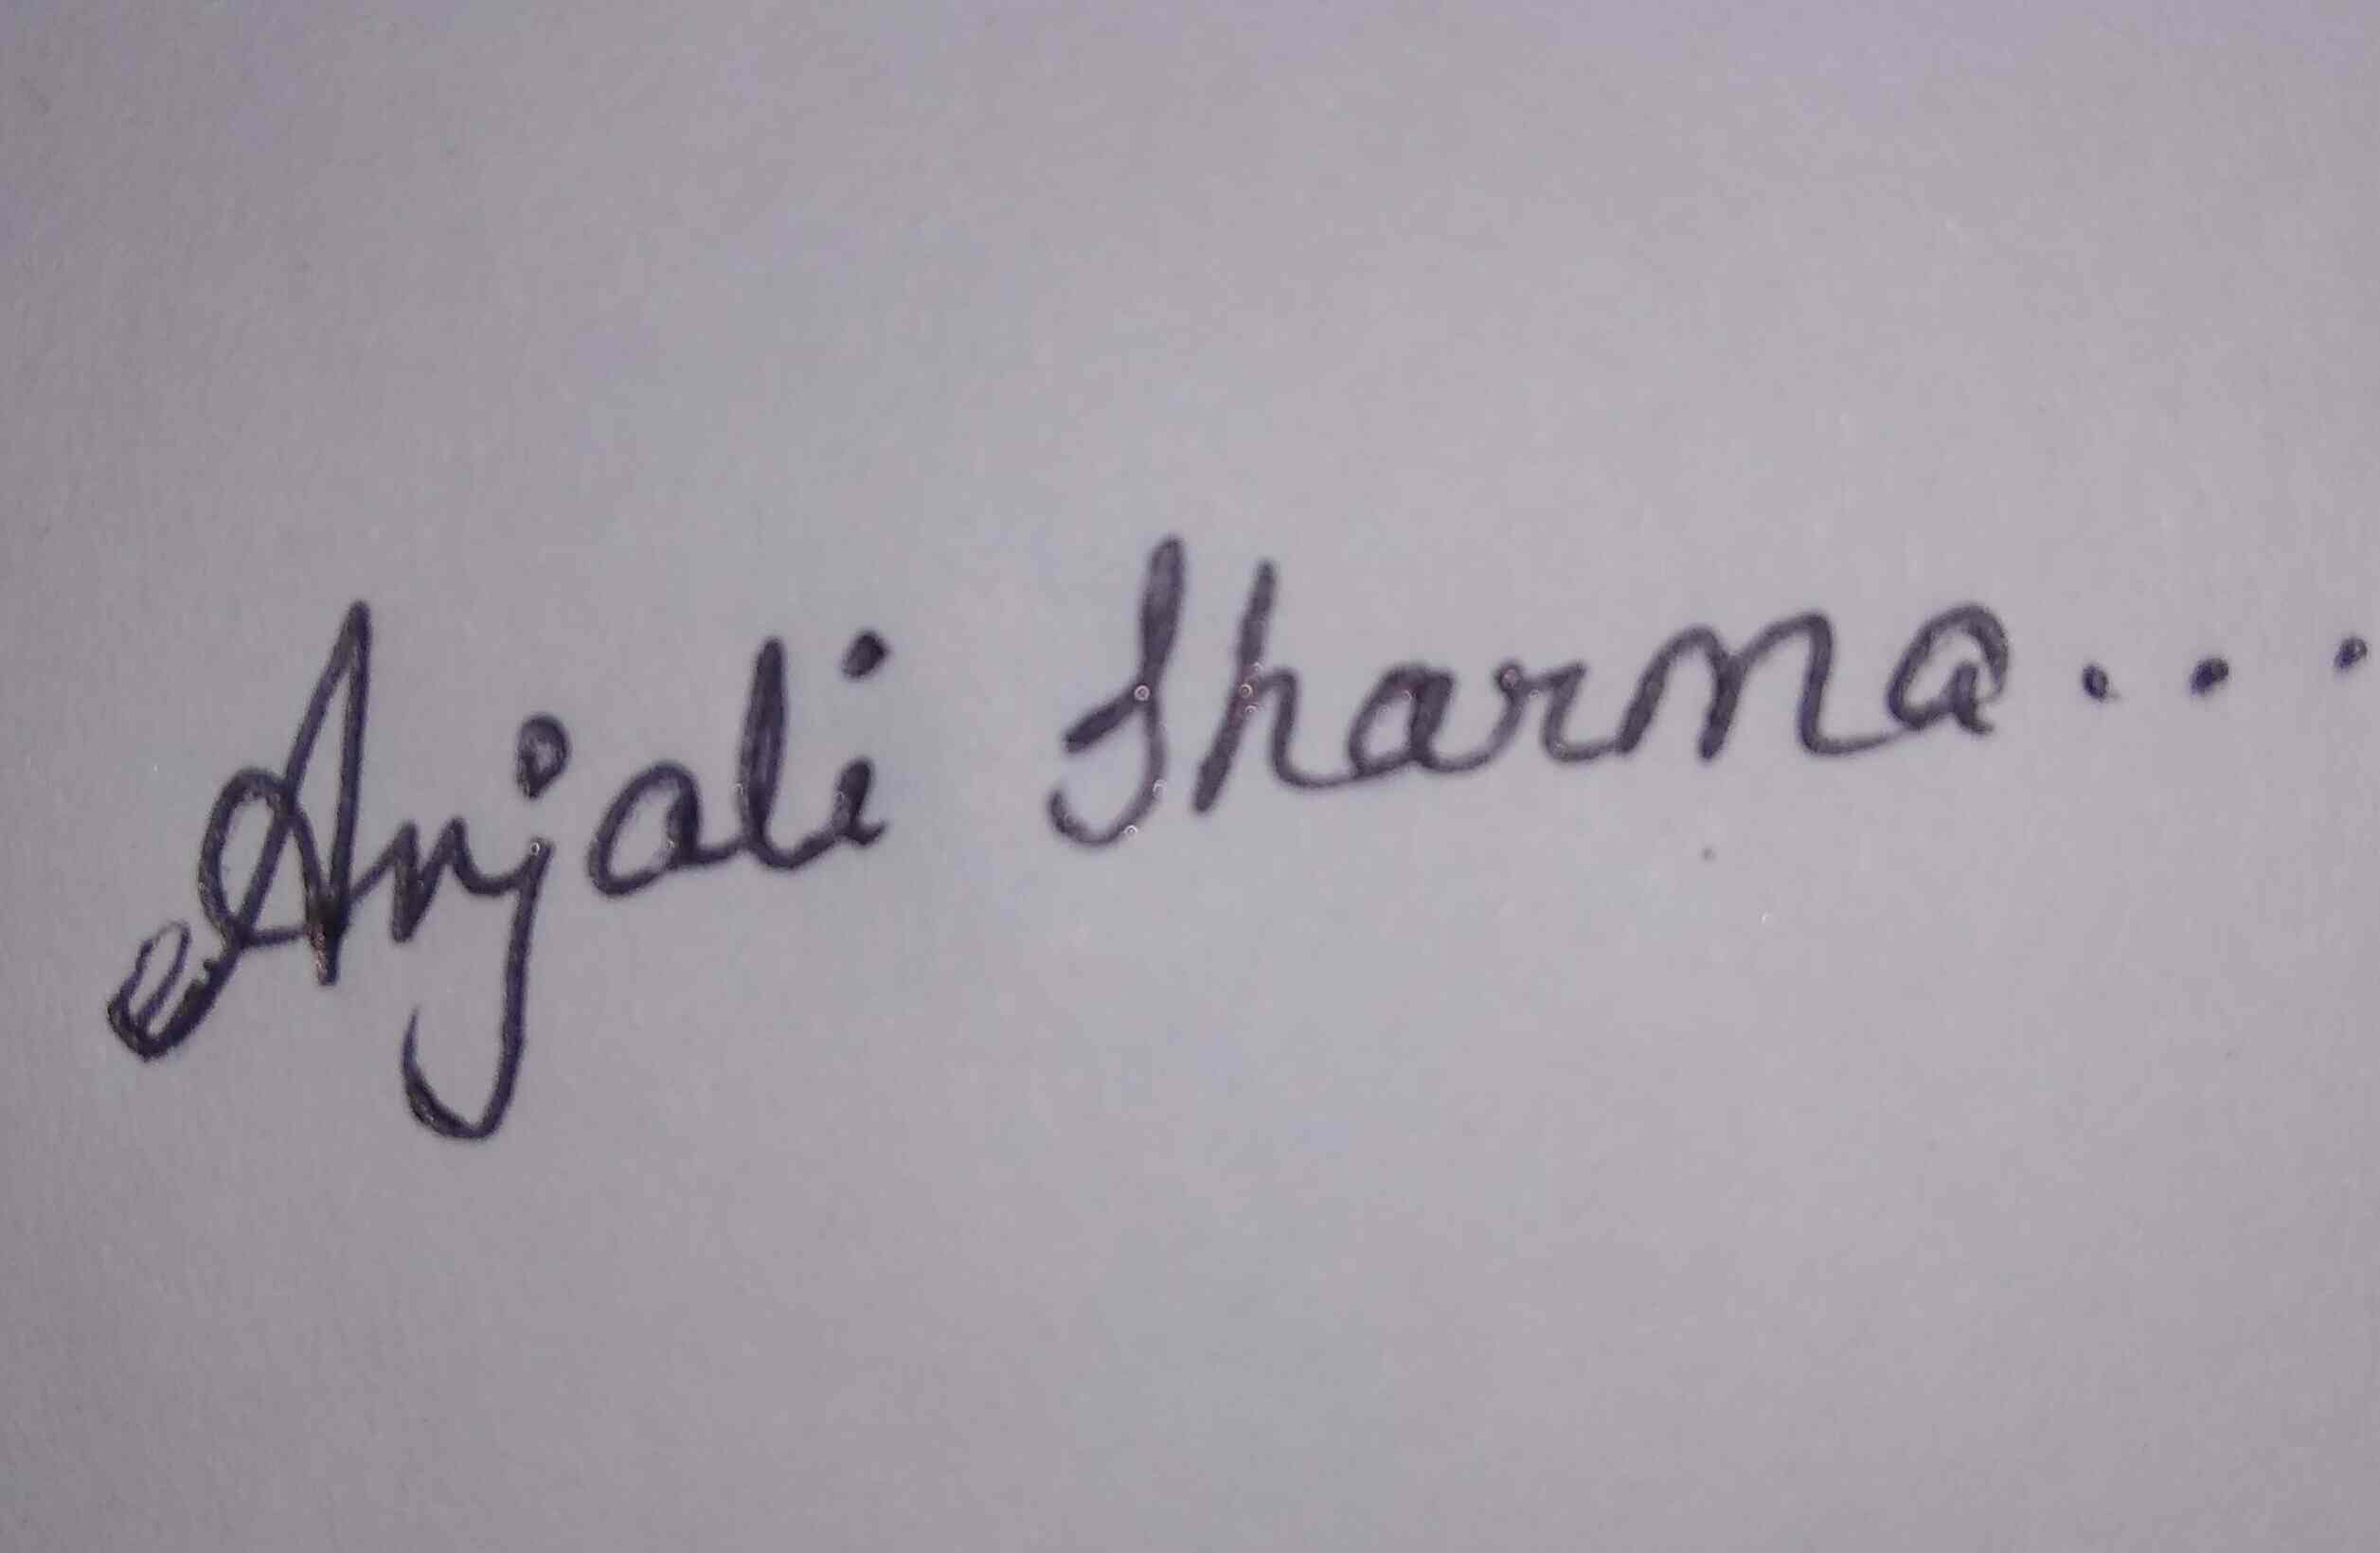 Anjali Sharma...